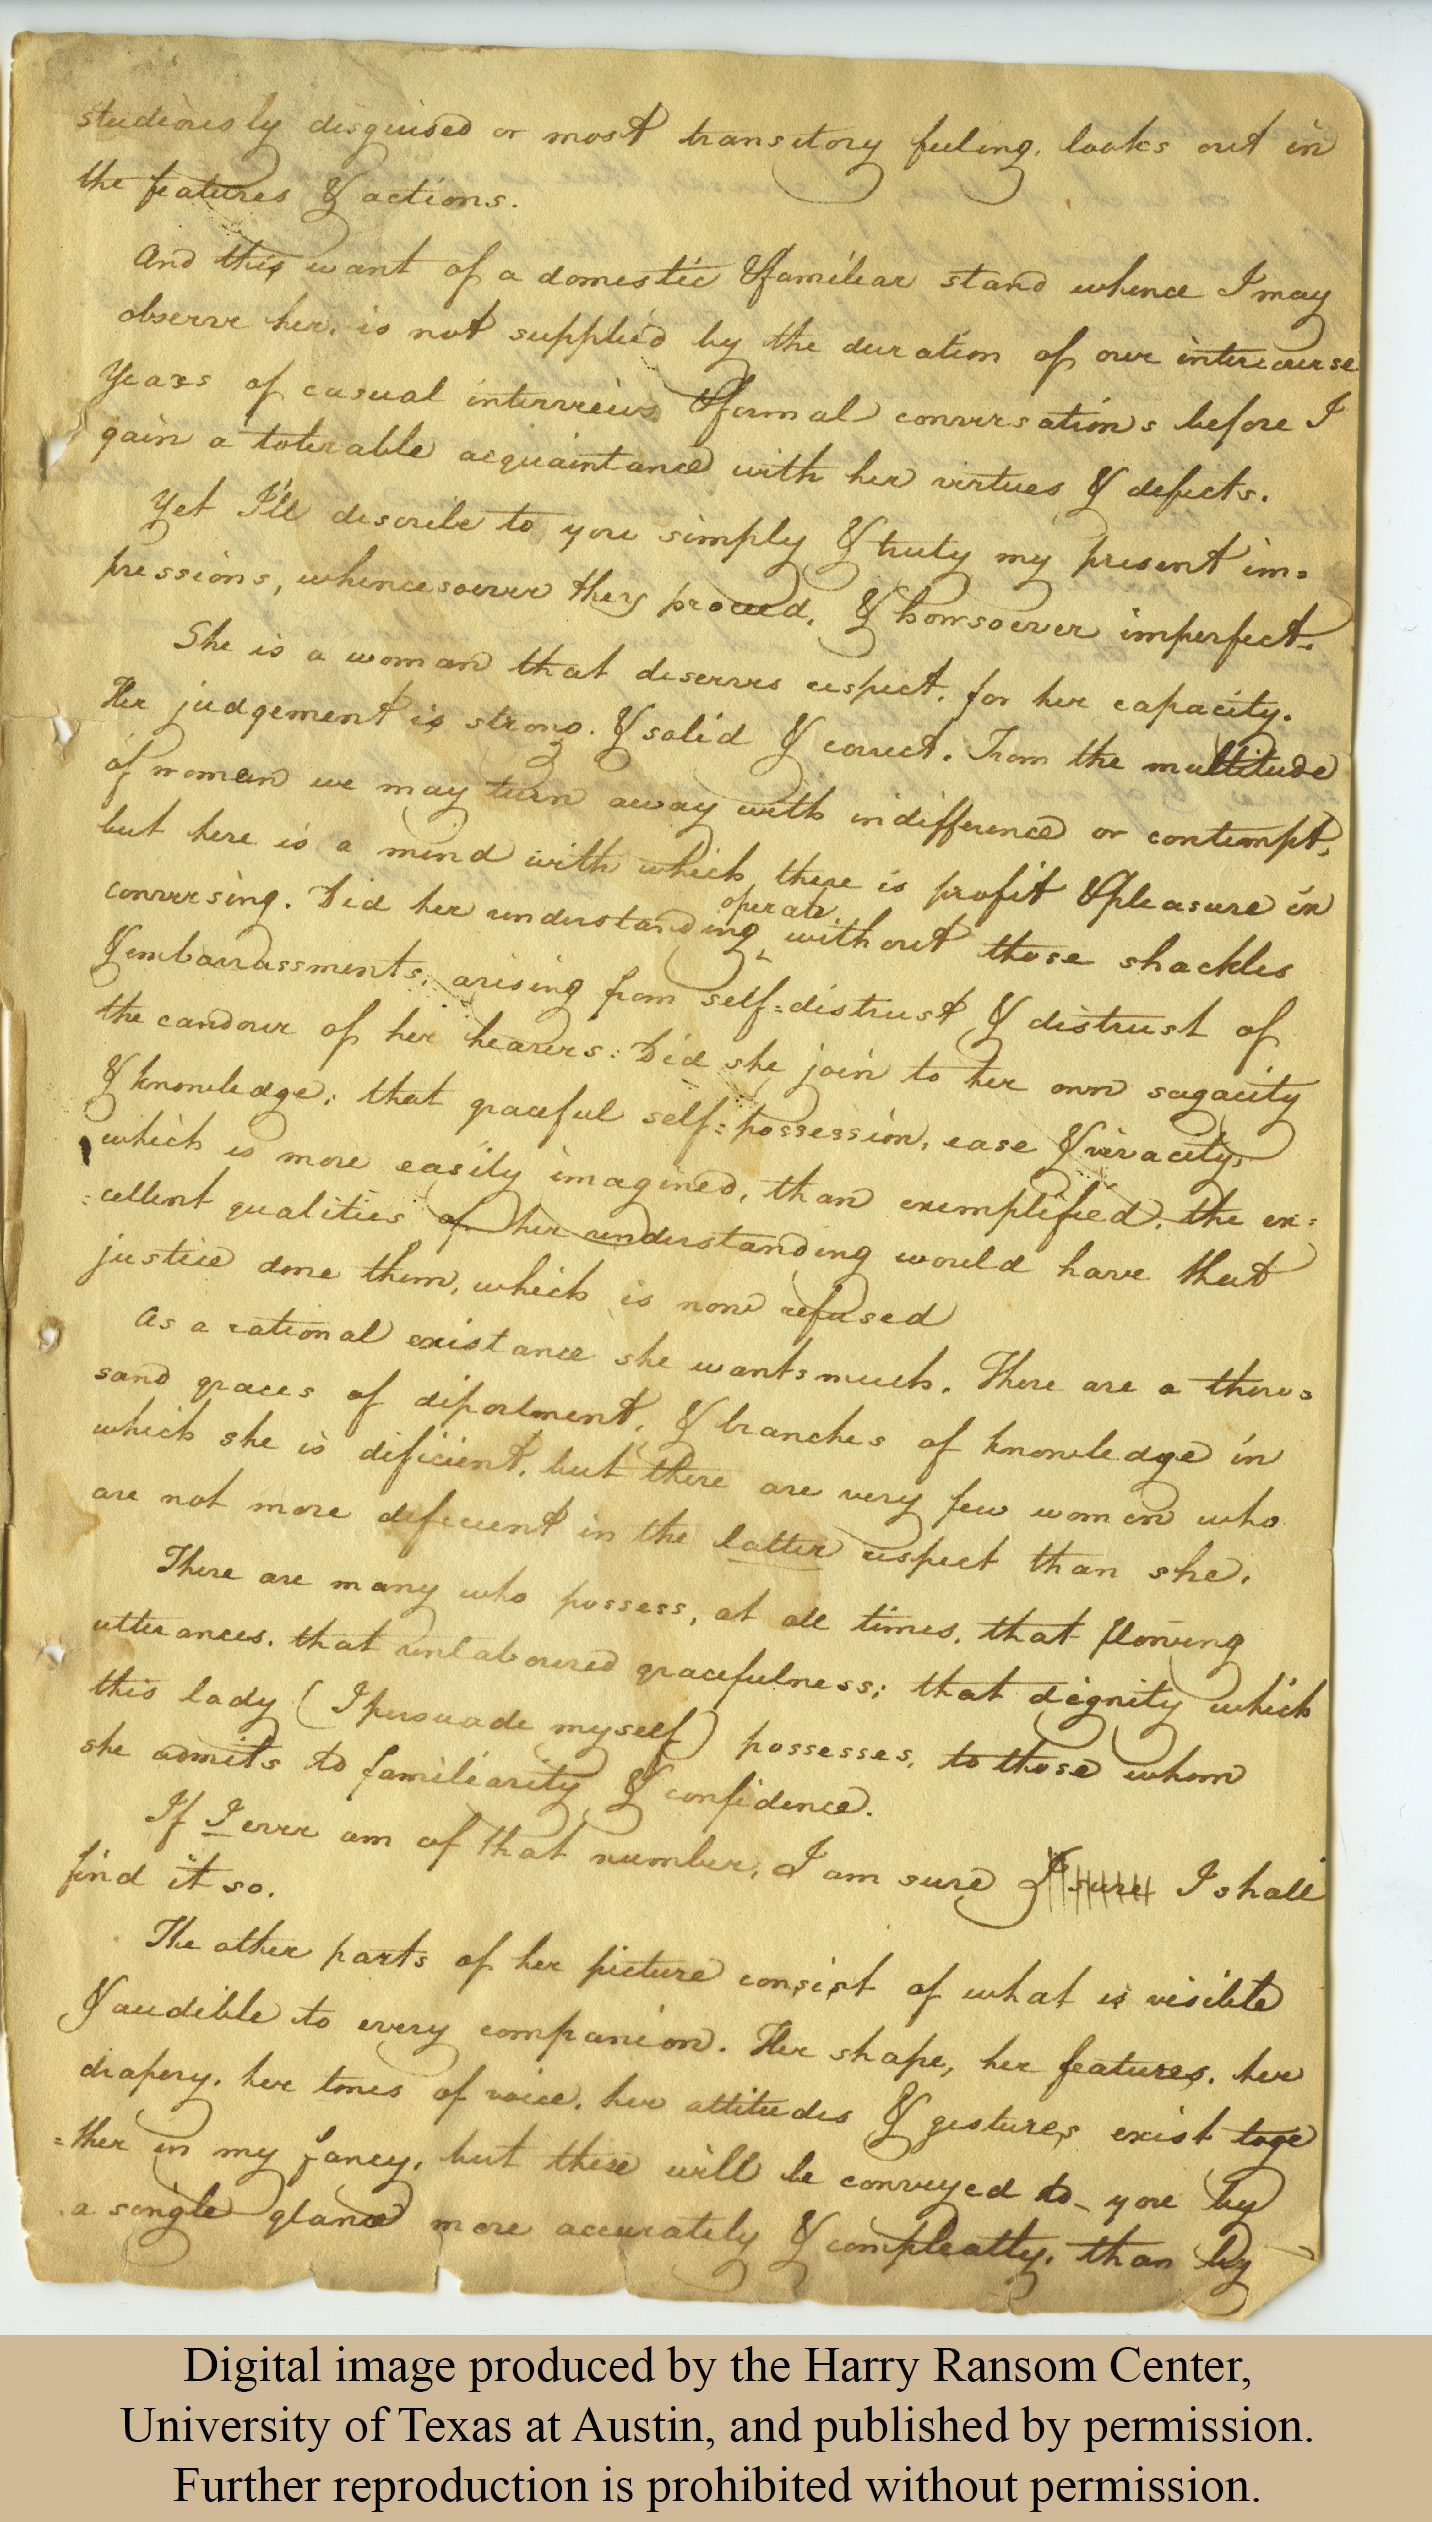 studiously disguised or most transitory feeling, looks out in
the features & actions.
And this want of a domestic & familiar stand whence I may
observe her, is not supplied by the duration of our intercourse
Years of casual interviews & formal conversations before I
gain a tolerable acquaintance with her virtues & defects.
Yet I'll describe to you simply & truly my present im=
pressions, whencesoever they proceed, & howsoever imperfect.
She is a woman that deserves respect, for her capacity.
Her judgement is strong. & solid & correct. From the multitude
of women we may turn away with indifference or contempt,
but here is a mind with which there is profit & pleasure in
conversing. Did her understanding operate without those shackles
& embarrassments, arising from self=distrust & distrust of
the candour of her hearers: Did she join to her own sagacity
& knowledge, that graceful self=possession, ease & vivacity,
which is more easily imagined, than exemplified, the ex=
=cellent qualities of her understanding would have that
justice done them, which is now refused
As a rational existance she wants much. There are a thou=
sand graces of deportment, & branches of knowledge in
which she is deficient, but there are very few women who
are not more deficient in the latter respect than she.
There are many who possess, at all times, that flowing
utterances, that unlaboured gracefulness; that dignity which
this lady (I persuade myself) possesses, to those whom
she admits to familiarity & confidence.
If I ever am of that number, I am sure I sure I shall
find it so.
The other parts of her picture consist of what is visible
& audible to every companion. Her shape, her features, her
drapery, her tones of voice, her attitudes & gestures exist toge
=ther in my fancy, but these will be conveyed to you by
a single glance more accurately & compleatly, than by
Digital image produced by the Harry Ransom Center,
University of Texas at Austin, and published by permission.
Further reproduction is prohibited without permission.